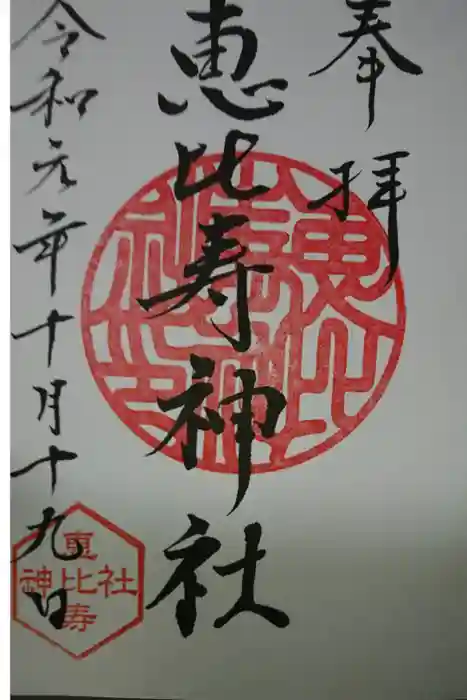 奉拝
恵比寿神社
令和元年十月十九日
恵
神比社
寿